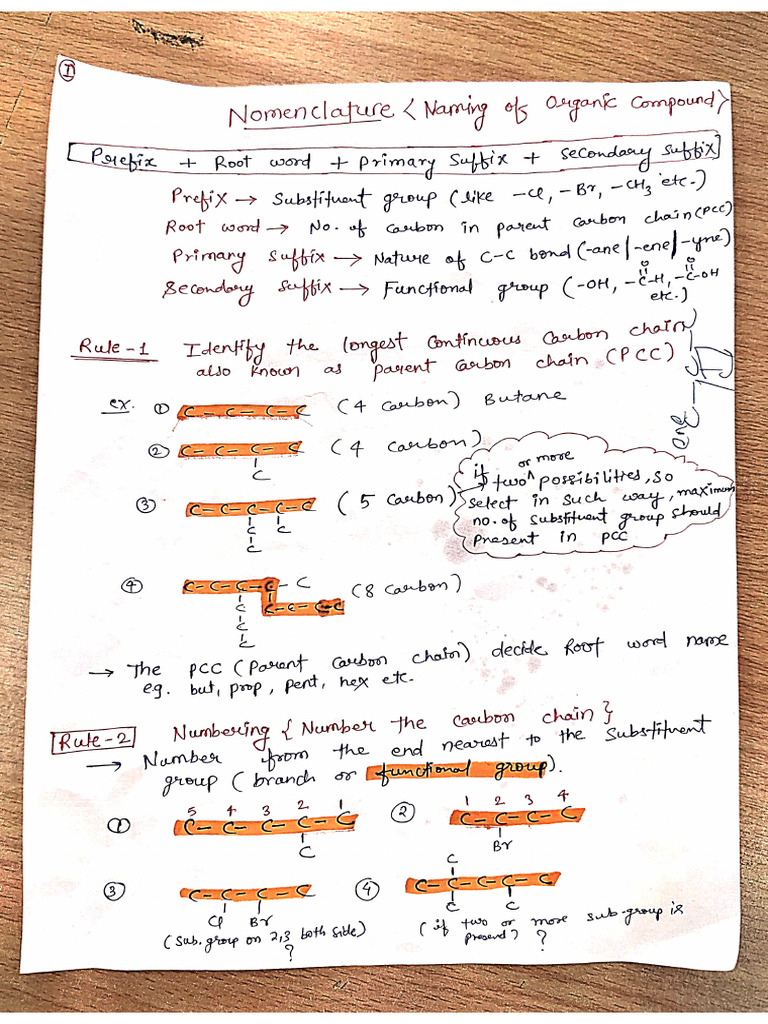 I
Nomenclature < Naming of Organic Compound >
[Prefix + Root word + primary suffix + secondary suffix]
Prefix → Substituent group (like -Cl, -Br, -CH3 etc.)
Root word → No. of carbon in parent carbon chain (PCC)
Primary suffix → Nature of C-C bond (-ane/-ene/-yne)
Secondary suffix → Functional group (-OH, -C(=O)-H, -C(=O)-OH etc.)
Rule-1 Identify the longest continuous carbon chain
also known as parent carbon chain (PCC)
ex. ① C-C-C-C (4 carbon) Butane
② C-C-C-C (4 carbon)
C
if two or more possibilities, so
select in such way, maximum
no. of substituent group should
present in PCC
③ C-C-C-C-C (5 carbon)
C C
C
④ C-C-C-C-C (8 carbon)
C C-C-C-C
C
C
→ The PCC (Parent carbon chain) decide Root word name
eg. but, prop, pent, hex etc.
Rule-2 Numbering {Number the carbon chain}
→ Number from the end nearest to the substituent
group (branch or functional group).
5 4 3 2 1
① C-C-C-C-C
C
1 2 3 4
② C-C-C-C
Br
③ C-C-C-C
Cl Br
(sub.group on 2,3 both side)
?
C
④ C-C-C-C-C
C C
(if two or more sub-group is
present) ?